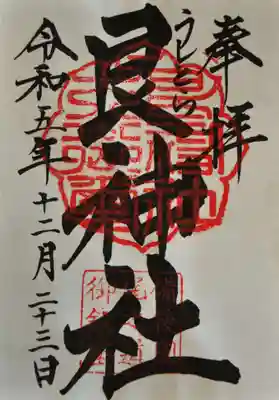 奉拝
うしとら
艮神社
令和五年十二月二十三日